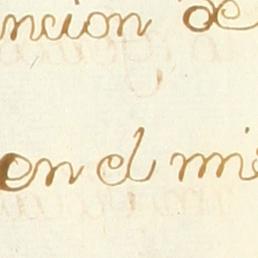 ncion de
en el mi